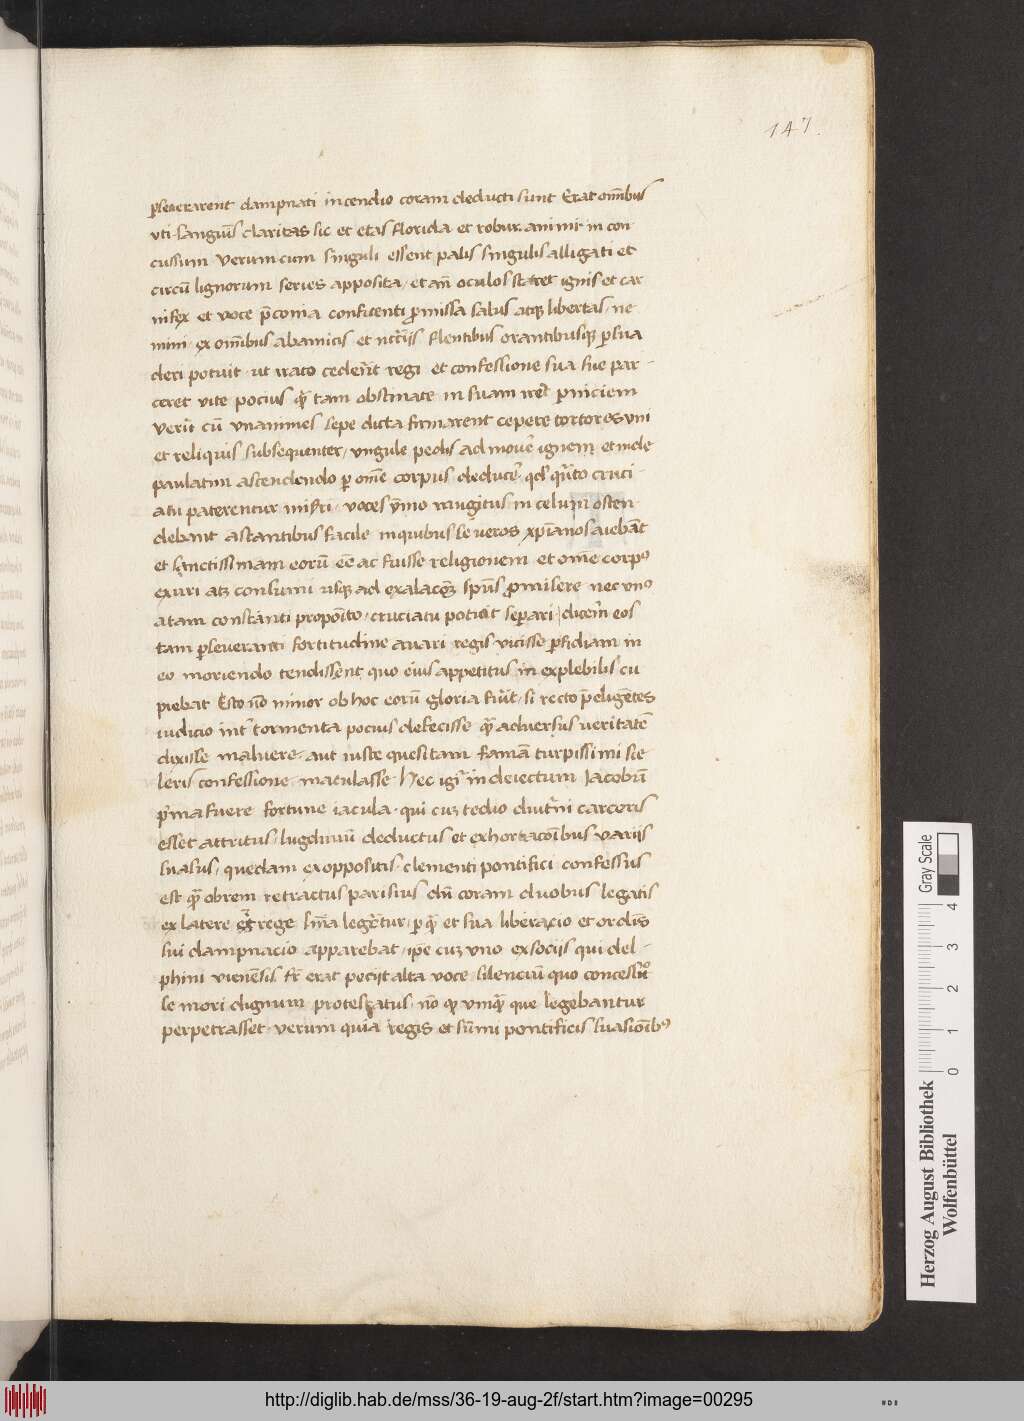 147.
pseverarent dampnati incendio coram deducti sunt Erat omībus
vti sanguīs claritas sic et etas florida et robur animi in con
cussum verum cum singuli essent palis singulis alligati et
circū lignorum series apposita / et añ oculos staret ignis et car
nifex et voce p̄conia confitenti pmissa salus atqȝ libertas / ne
mini ex omībus ab amicis et nccīis flentibus orantibusqȝ psua
deri potuit ut irato cederēt regi et confessione sua sue par-
ceret vite pocius qȝ tam obstinate in suam pniciem
verū cū vnanimes sepe dicta firmarent cepere tortores vni
et reliquis subsequenter / vngule pedis ad mouē ignem et inde
paulatim ascendendo p om̄e corpus deducē qd qn̄to cruci-
atu paterentur misti / voces ȳmo mugitus in celum osten
debant astantibus facile in quibus se veros xpianos aiebāt
et sanctissimam eorū eē ac fuisse religionem et om̄e corpꝰ
exuri atȝ consumi usqȝ ad exalacōȝ spūs pmisere nec vnꝰ
a tam constanti propoīto / cruciatu potuit separi dicerem eos
tam pseveranti fortitudine avari regis vicisse pfidiam in
eo moriendo tendissent quo eius appetitus in explebilis cu
piebat Esto nō minor ob hoc eorū gloria fuīt / si recto p̄eligētes
iudicio int tormenta pocius defecisse qȝ adversus veritatē
dixisse maluere aut iuste quesitam famā turpissimi sce
leris confessione maculasse Hec igr in deiectum Jacobū
pma fuere fortune iacula qui cuȝ tedio diutni carceris
esset attritus / lugdunū deductus et exhortacoībus variis
suasus / quedam ex oppositis clementi pontifici confessus
est qȝ obrem retractus parisius dū coram duobus legatis
ex latere rege sn̄ia legētur / p quā et sua liberacio et ordīs
sui dampnacio apparebat / ipe cuȝ vno ex sociis qui del-
phini vienēsis fr erat peciit alta voce silenciū quo concesso
se mori dignum protestatus / nō qȝ vmqȝ que legebantur
perpetrasset / verum quia regis et sūmi pontificis suasioībꝰ
Gray Scale
0 1 2 3 4
Herzog August Bibliothek
Wolfenbüttel
http://diglib.hab.de/mss/36-19-aug-2f/start.htm?image=00295